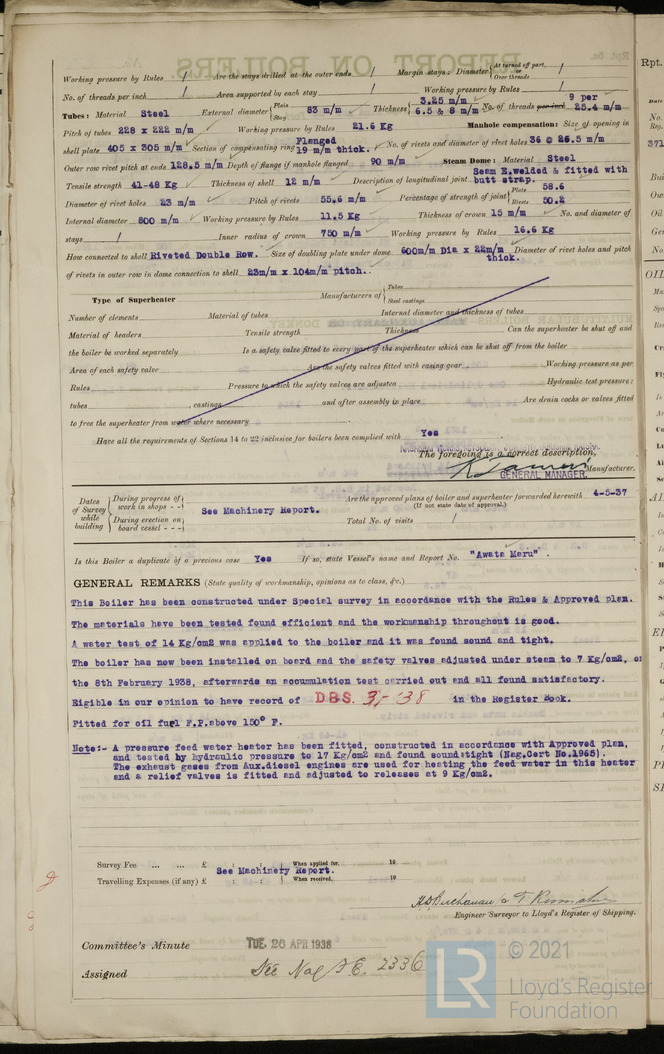 Working pressure by Rules / Are the stays drilled at the outer ends / Margin stays: Diameter { At turned off part, or Over threads /
No. of threads per inch / Area supported by each stay / Working pressure by Rules /
Tubes: Material Steel External diameter { Plain Stay 83 m/m Thickness { 3.25 m/m 6.5 & 8 m/m No. of threads per inch 9 per 25.4 m/m
Pitch of tubes 228 x 222 m/m Working pressure by Rules 21.6 Kg Manhole compensation: Size of opening in
shell plate 405 x 305 m/m Section of compensating ring Flanged 19 m/m thick. No. of rivets and diameter of rivet holes 36 @ 26.5 m/m
Outer row rivet pitch at ends 128.5 m/m Depth of flange if manhole flanged 90 m/m Steam Dome: Material Steel
Tensile strength 41-48 Kg Thickness of shell 12 m/m Description of longitudinal joint Seam E.welded & fitted with butt strap.
Diameter of rivet holes 23 m/m Pitch of rivets 55.6 m/m Percentage of strength of joint { Plate 58.6 Rivets 50.2
Internal diameter 800 m/m Working pressure by Rules 11.5 Kg Thickness of crown 15 m/m No. and diameter of
stays / Inner radius of crown 750 m/m Working pressure by Rules 16.6 Kg
How connected to shell Riveted Double Row. Size of doubling plate under dome 600m/m Dia x 22m/m thick. Diameter of rivet holes and pitch
of rivets in outer row in dome connection to shell 23m/m x 104m/m pitch.
Type of Superheater Manufacturers of { Tubes Steel castings
Number of elements Material of tubes Internal diameter and thickness of tubes
Material of headers Tensile strength Thickness Can the superheater be shut off and
the boiler be worked separately Is a safety valve fitted to every part of the superheater which can be shut off from the boiler
Area of each safety valve Are the safety valves fitted with easing gear Working pressure as per
Rules Pressure to which the safety valves are adjusted Hydraulic test pressure:
tubes castings and after assembly in place Are drain cocks or valves fitted
to free the superheater from water where necessary
Have all the requirements of Sections 14 to 22 inclusive for boilers been complied with Yes
The foregoing is a correct description,
GENERAL MANAGER. Manufacturer.
Dates of Survey while building { During progress of work in shops - - } { During erection on board vessel - - - } See Machinery Report.
Are the approved plans of boiler and superheater forwarded herewith 4-5-37
(If not state date of approval.)
Total No. of visits /
Is this Boiler a duplicate of a previous case Yes If so, state Vessel's name and Report No. "Awata Maru" .
GENERAL REMARKS (State quality of workmanship, opinions as to class, &c.)
This Boiler has been constructed under Special survey in accordance with the Rules & Approved plan.
The materials have been tested found efficient and the workmanship throughout is good.
A water test of 14 Kg/cm2 was applied to the boiler and it was found sound and tight.
The boiler has now been installed on board and the safety valves adjusted under steam to 7 Kg/cm2, on
the 8th February 1938, afterwards an accumulation test carried out and all found satisfactory.
Eigible in our opinion to have record of DBS. 3,-'38 in the Register Book.
Fitted for oil fuel F.P.above 150° F.
Note:- A pressure feed water heater has been fitted, constructed in accordance with Approved plan,
and tested by hydraulic pressure to 17 Kg/cm2 and found sound:tight (Nag.Cert No.1965).
The exhaust gases from Aux.diesel engines are used for heating the feed water in this heater
and a relief valves is fitted and adjusted to releases at 9 Kg/cm2.
Survey Fee ... ... £ : : When applied for, 19
See Machinery Report.
Travelling Expenses (if any) £ : : When received, 19
Engineer Surveyor to Lloyd's Register of Shipping.
Committee's Minute TUE. 26 APR 1938
Assigned See Nag F.E. 2336
LR
© 2021
Lloyd's Register
Foundation